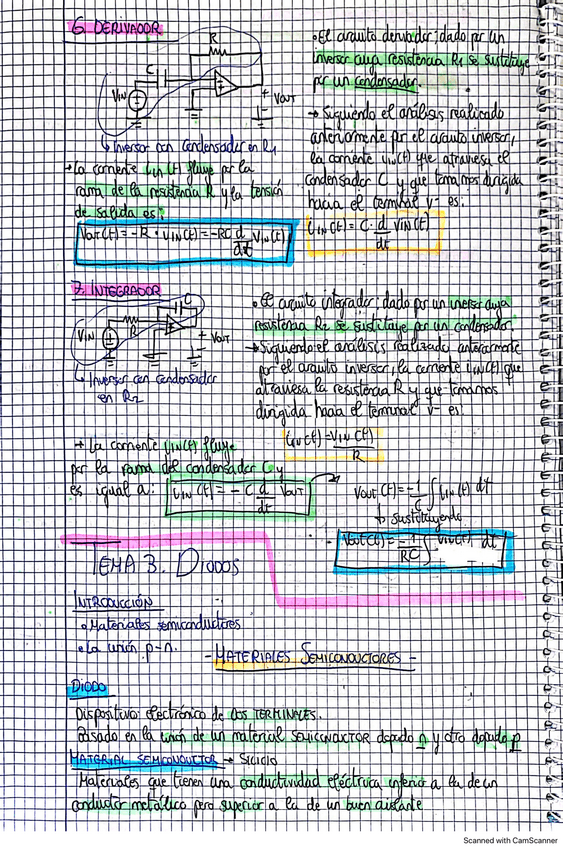 6. DERIVADOR
R
C
VIN
+
VOUT
-
↳ Inversor con condensador en R1
• El circuito derivador; dado por un
inversor cuya resistencia R1 se sustituye
por un condensador.
→ Siguiendo el análisis realizado
anteriormente por el circuito inversor,
la corriente iIN(t) que atraviesa el
condensador C y que tomamos dirigida
hacia el terminal v- es:
iIN(t) = C · d/dt VIN(t)
→ La corriente iIN(t) fluye por la
rama de la resistencia R y la tensión
de salida es:
VOUT(t) = -R · iIN(t) = -RC d/dt VIN(t)
7. INTEGRADOR
C
R
VIN
+
VOUT
-
↳ Inversor con condensador
en R2
• El circuito integrador; dado por un inversor cuya
resistencia R2 se sustituye por un condensador.
→ Siguiendo el análisis realizado anteriormente
por el circuito inversor, la corriente iIN(t) que
atraviesa la resistencia R y que tomamos
dirigida hacia el terminal v- es:
iIN(t) = VIN(t)/R
→ La corriente iIN(t) fluye
por la rama del condensador C y
es igual a: iIN(t) = -C d/dt VOUT
VOUT(t) = -1/C ∫ iIN(t) dt
↳ sustituyendo
VOUT(t) = -1/RC ∫ VIN(t) dt
TEMA 3. DIODOS
INTRODUCCIÓN
• Materiales semiconductores
• La unión p-n.
- MATERIALES SEMICONDUCTORES -
DIODO
Dispositivo electrónico de DOS TERMINALES.
Basado en la unión de un material SEMICONDUCTOR dopado n y otro dopado p
MATERIAL SEMICONDUCTOR → Silicio
Materiales que tienen una conductividad eléctrica inferior a la de un
conductor metálico pero superior a la de un buen aislante
Scanned with CamScanner